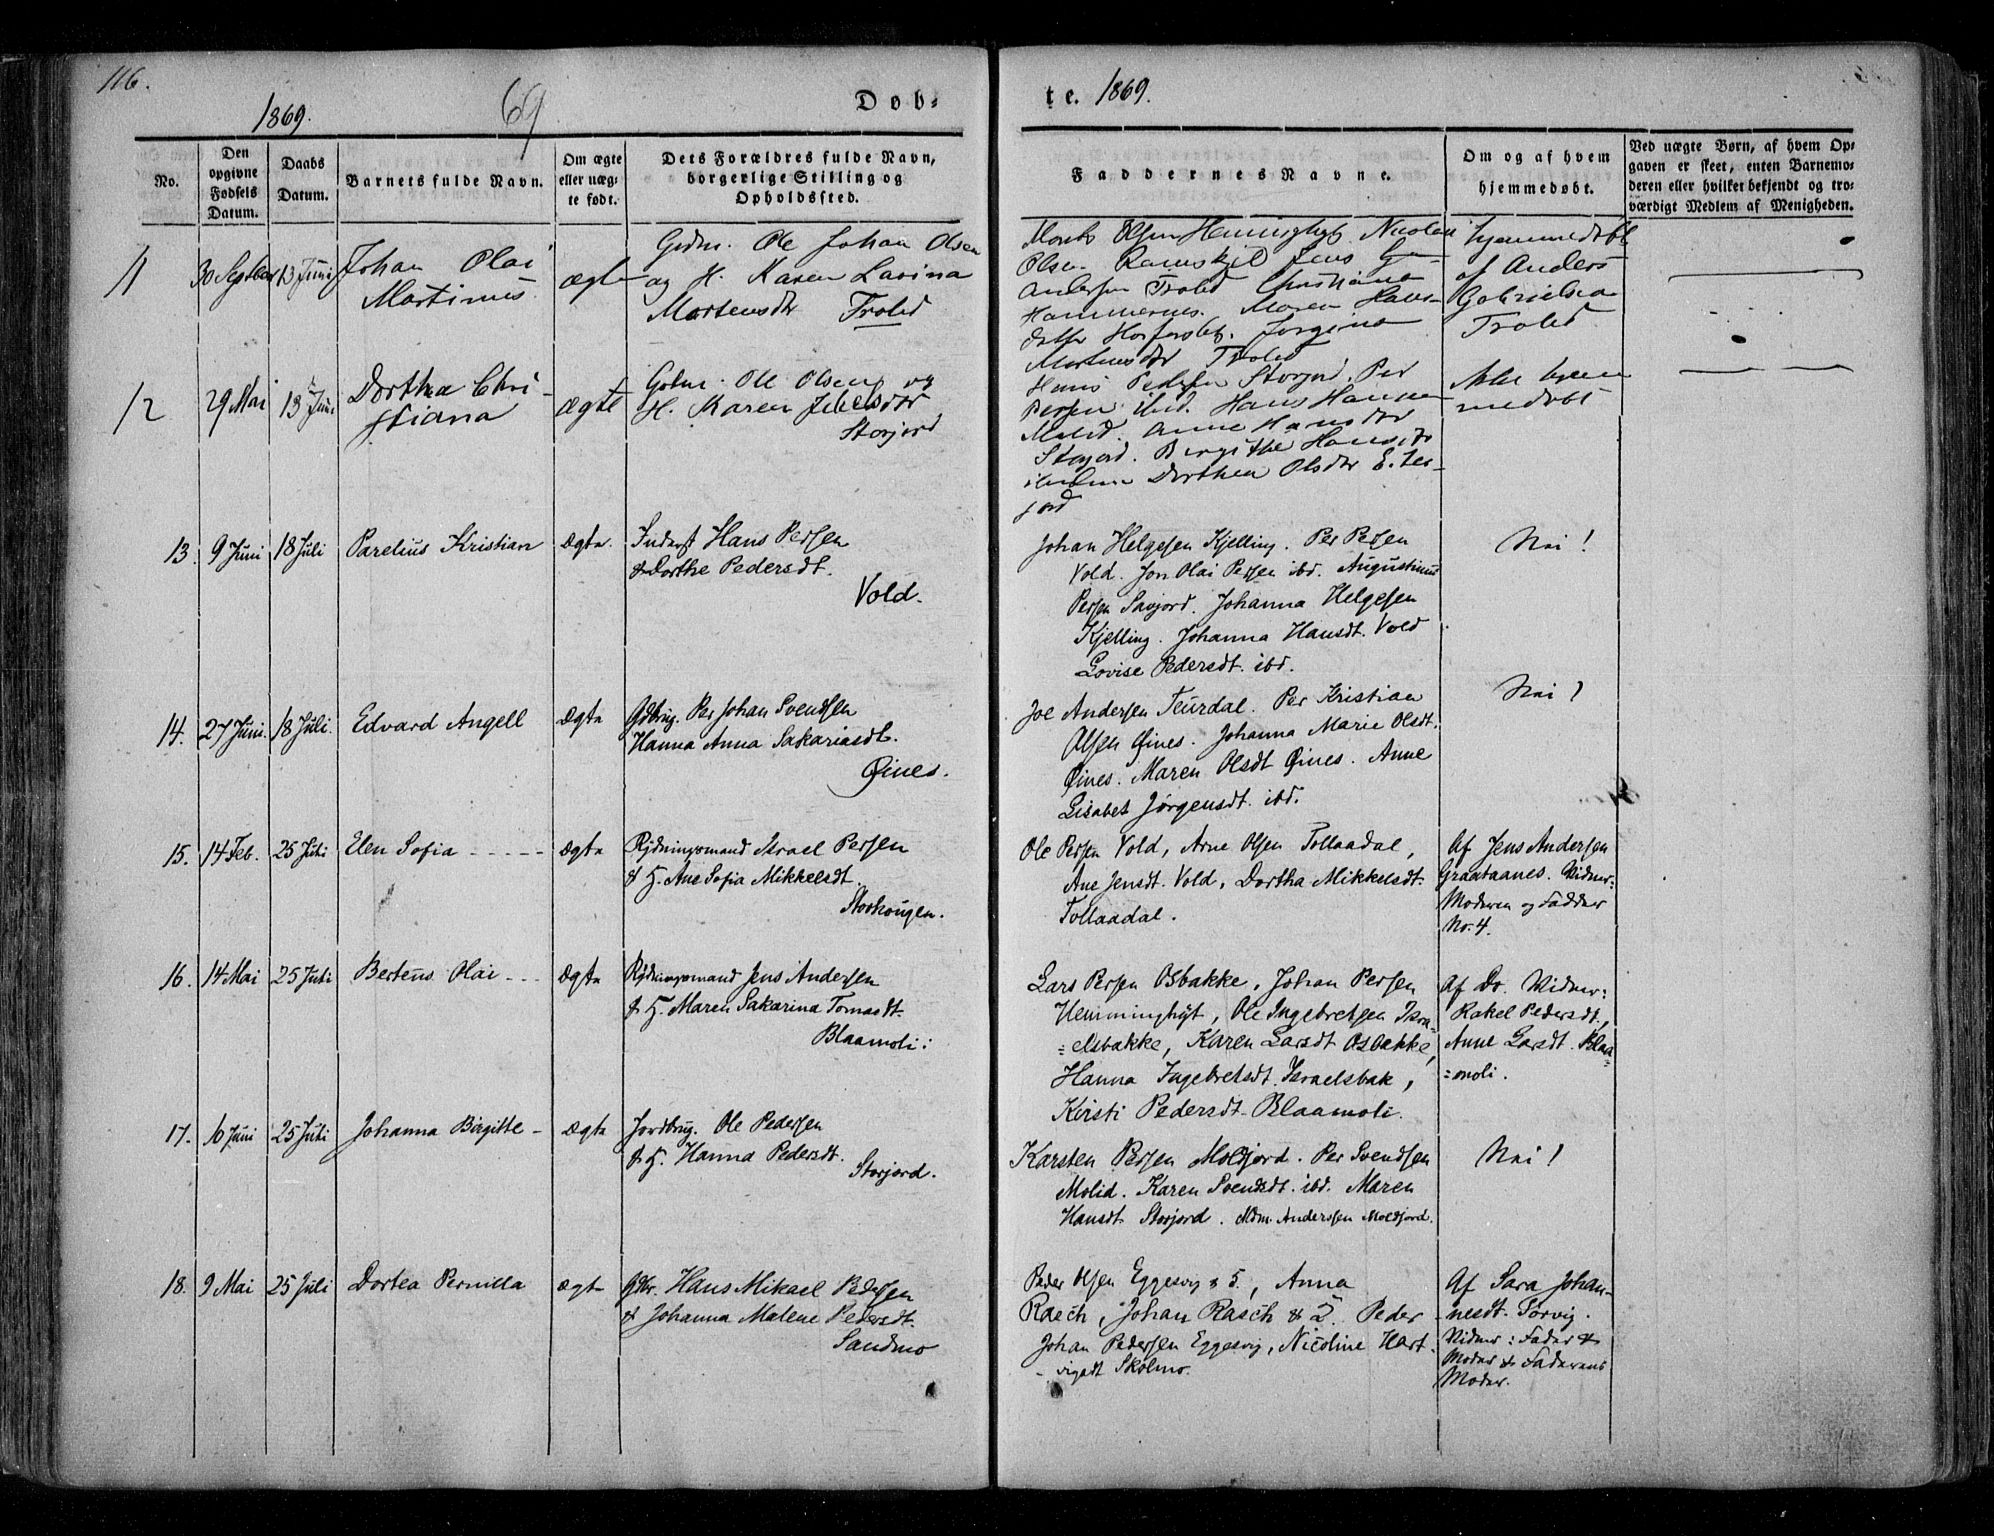 116.
1869.
69
Døb-
No.
Den opgivne Fødsels Datum.
Daabs Datum.
Barnets fulde Navn.
Om ægte eller uægte født.
Dets Forældres fulde Navn, borgerlige Stilling og Opholdssted.
11
13 Juni
Johan Olai
Martinus
ægte
Grdm. Ole Johan Olsen
og H. Karen Lavina
Mortensdtr
12
29 Mai
13 Juni
Dorthea Chri-
stiana
ægte
Ole Olsen og
H. Karen
Storjord
13.
9 Juni
18 Juli
Parelius Kristian
Ægte.
Inderst Hans Persen
& Dorthe Pedersdt.
Vold.
14.
27 Juni.
18 Juli.
Edvard Angell
Ægte
Gdbrug. Per Johan Svendsen
Hanna Anna Sakariasdt.
Øines.
15.
14 Feb.
25 Juli
Elen Sofia - - - - -
Ægte
Rydningsmand Israel Persen
& H. Ane Sofia Mikkelsdt.
Storhougen.
16.
14 Mai
25 Juli
Berteus Olai - - -
Ægte
Rydningsmand Jens Andersen
& H. Maren Sakarina Tomasdt.
Blaamoli:
17.
6 Juni
25 Juli
Johanna Birgitte -
Ægte
Jordbrug. Ole Pedersen
& H. Hanna Pedersdt.
Storjord.
18.
9 Mai
25 Juli
Dortea Pernilla
Ægte
Gbr. Hans Mikael Pedersen
& Johanna Malene Pedersdt.
Sandmo
te. 1869.
Faddernes Navne.
Om og af hvem hjemmedøbt.
Ved uægte Børn, af hvem Op-
gaven er skeet, enten Barnemo-
deren eller hvilket bekjendt og tro-
værdigt Medlem af Menigheden.
Olsen Hemminghyt. Nicolai
Olsen Ramskjel Jens
Andersen Christiane
Hammernes. Maren Hans-
datter Jorgine
hjemmedøbt
af Anders
Gabrielsen
Hans Pedersen Storjord. Per
Persen ibid. Hans Hansen
Molid. Anne Hansdtr
Storjord. Birgithe Hansdtr
Dorthea Olsdtr
jord
Ikke hjem
medøbt
Johan Helgesen Kjelling. Per Persen
Vold. Jon Olai Persen ibd. Augustinus
Persen Savjord. Johanna Helgesen
Kjelling. Johanna Hansdt. Vold
Lovise Pedersdt. ibd.
Nei!
Joe Andersen Teurdal. Per Kristian
Olsen Øines. Johanna Marie Olsdt.
Øines. Maren Olsdt Øines. Anne
Lisabet Jørgensdt. ibd.
Nei!
Ole Persen Vold, Arne Olsen Tollaadal,
Ane Jensdt. Vold, Dortha Mikkelsdt.
Tollaadal.
Af Jens Andersen
Graataanes. Vidner:
Moderen og Fadder
No. 4.
Lars Persen Osbakke, Johan Persen
Hemminghyt, Ole Ingebretsen Isra-
=elsbakke, Karen Larsdt Osbakke,
Hanna Ingebretsdt. Israelsbak,
Kirsti Pedersdt. Blaamoli.
Af Do. Vidner:
Rakel Pedersdt.,
Anne Larsdt. Blaa-
=moli.
Karsten Persen Moldjord. Per Svendsen
Molid. Karen Svendsdt. ibd. Maren
Hansdt Storjord. Mdm. Anderssen Moldjord.
Nei!
Peder Olsen Eggesvig & 5., Anna
Rasch, Johan Rasch & 2. Peder
Johan Pedersen Eggesvig, Nicoline Hart-
- vigsdt Skolmo.
Af Sara Johan-
nesdt. Sørvig.
Vidner: Fader &
Moder & Faderens
Moder.